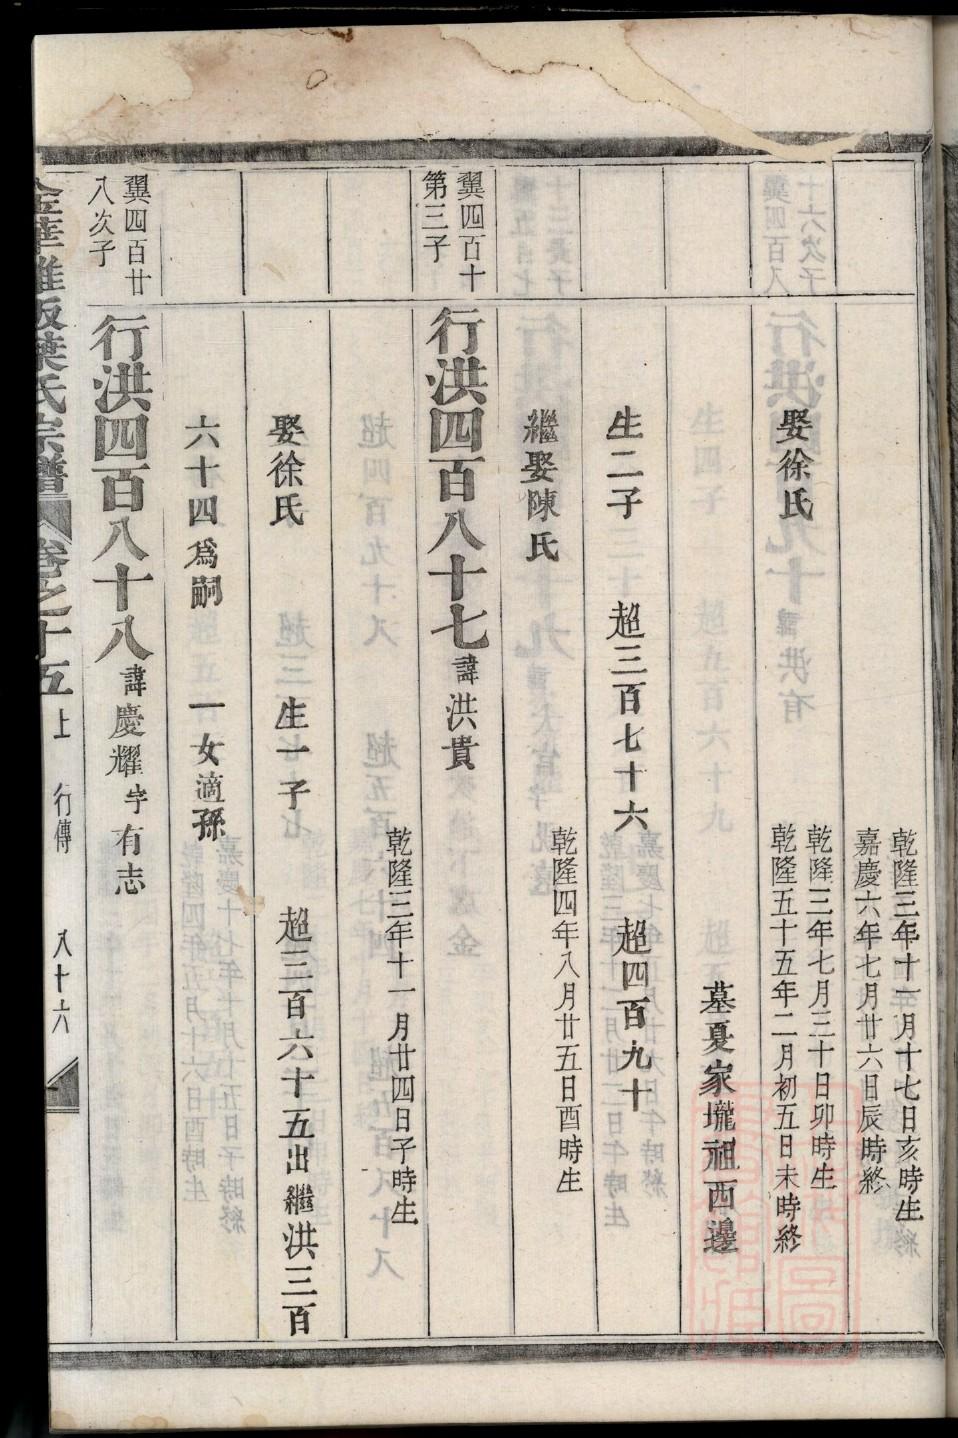 乾隆三年十一月十七日亥時生
嘉慶六年七月廿六日辰時終
娶徐氏
乾隆三年七月三十日卯時生
乾隆五十五年二月初五日未時終
墓夏家壠祖西邊
生二子 超三百七十六 超四百九十
繼娶陳氏
乾隆四年八月廿五日酉時生
翼四百十
第三子
行洪四百八十七 諱洪貴
乾隆三年十一月廿四日子時生
娶徐氏 生一子 超三百六十五出繼洪三百
六十四爲嗣 一女適孫
翼四百廿
八次子
行洪四百八十八 諱慶耀字有志
葉氏宗譜 卷之十五上 行傳 八十六